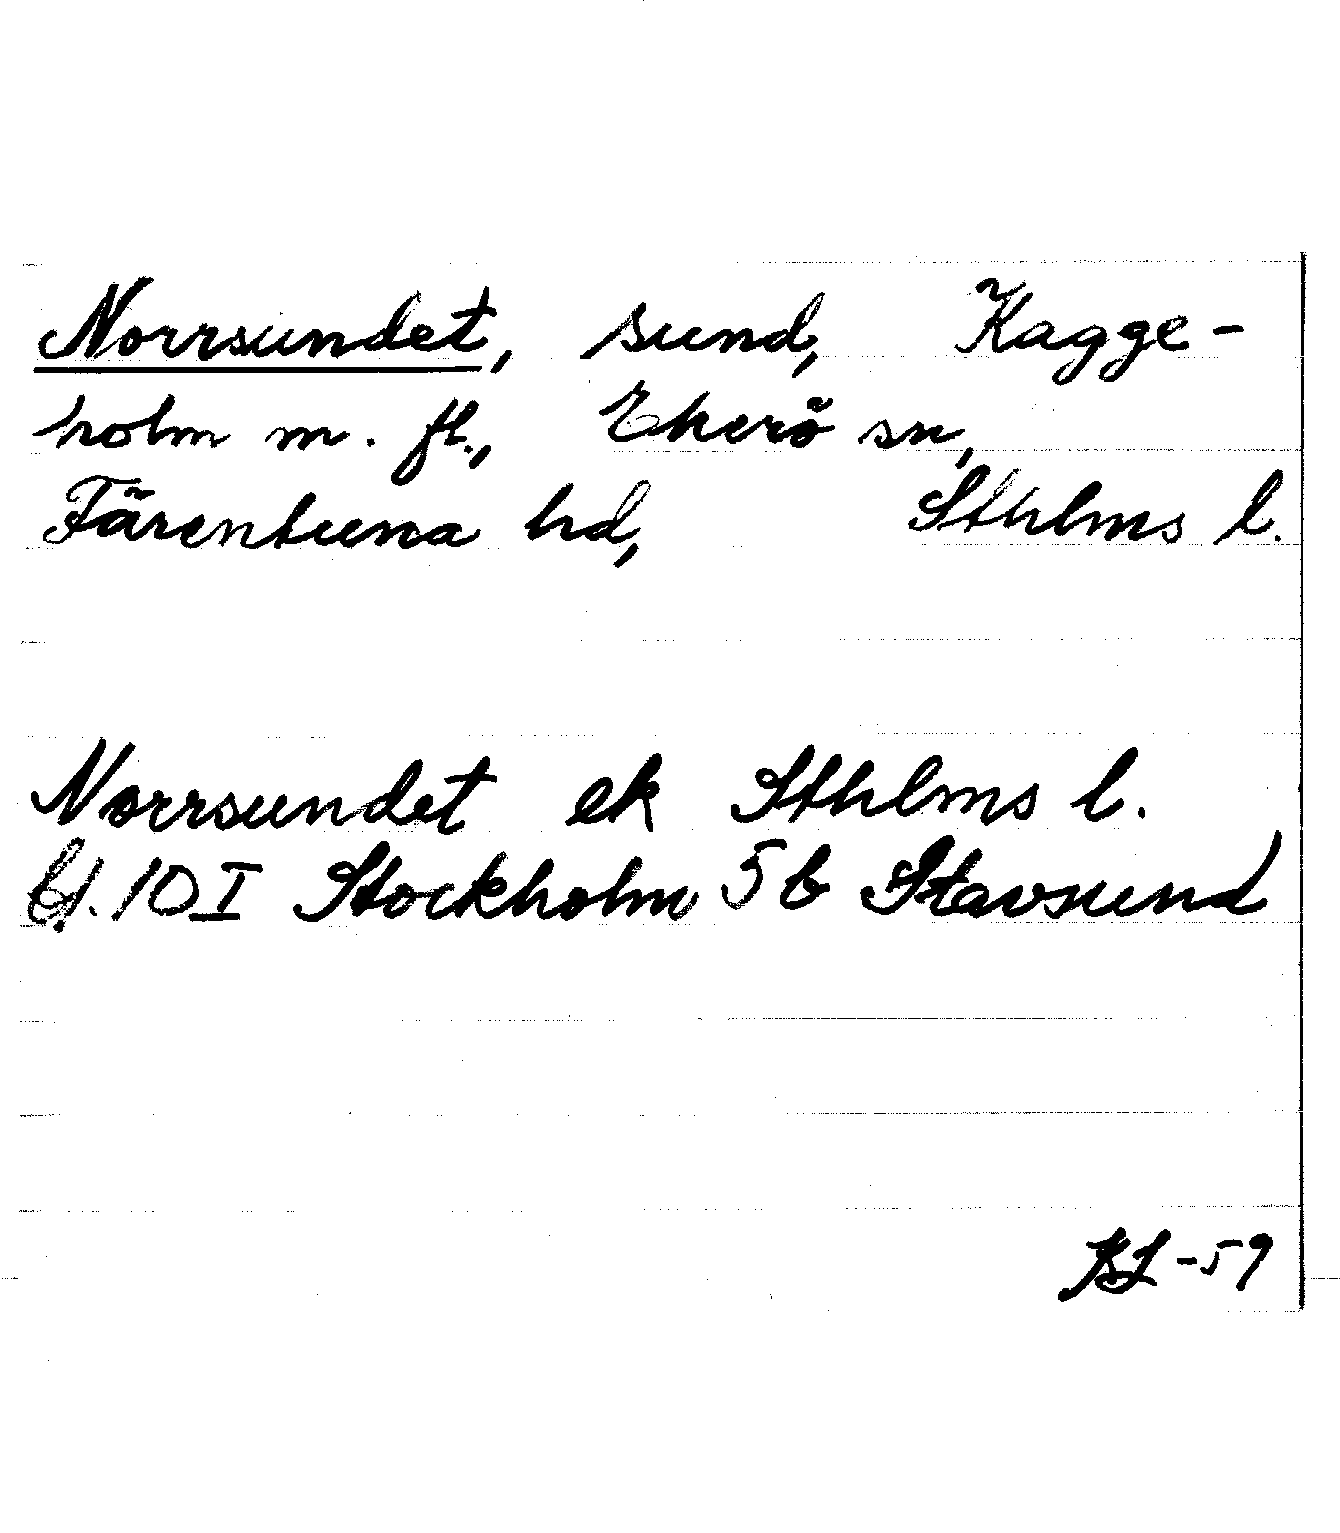 Norrsundet, sund, Kagge-
holm m. fl., Ekerö sn,
Färentuna hd, Sthlms l.
Norrsundet ek Sthlms l.
bl. 10 I Stockholm 5 b Stavsund
KL -59